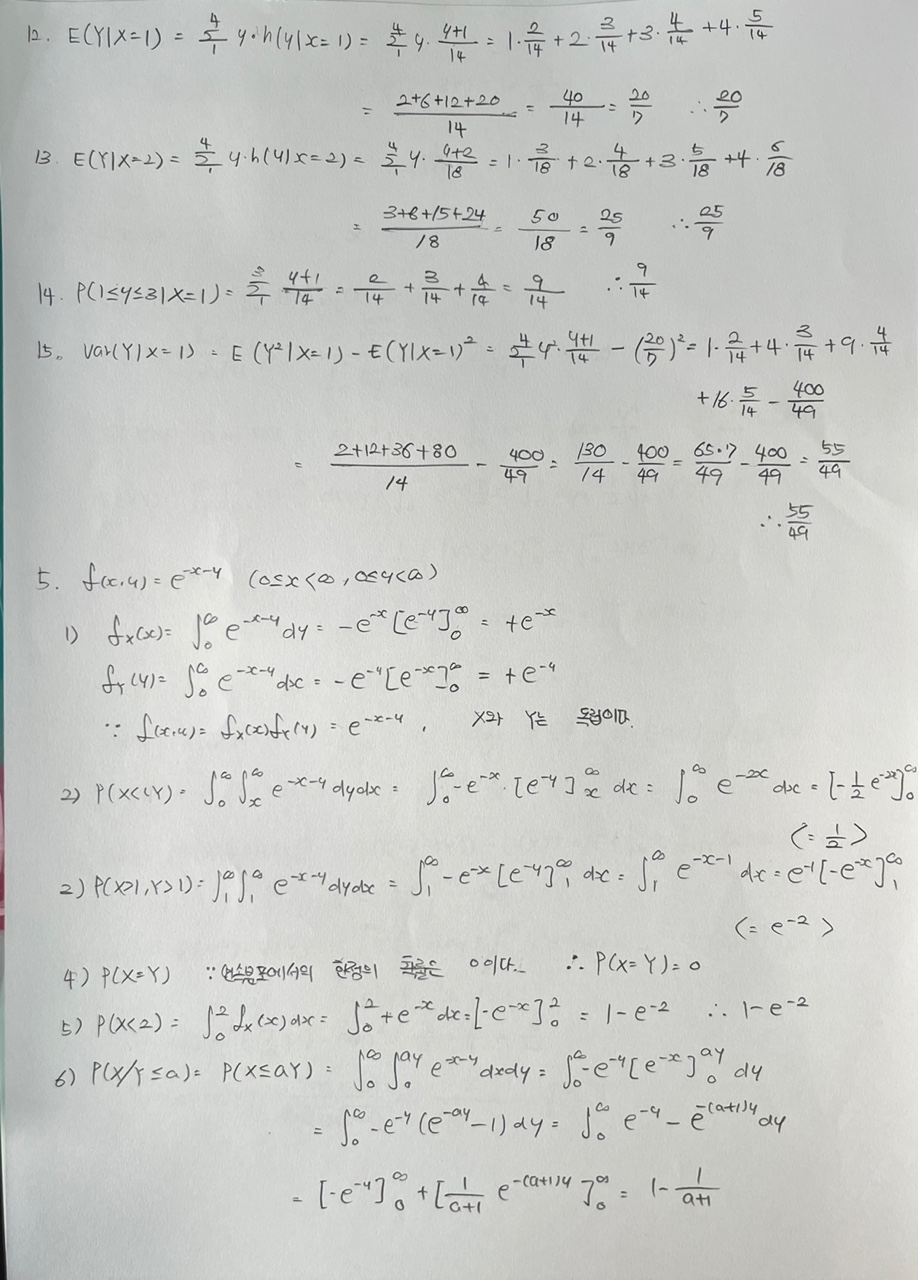 12. E(Y|X=1) = Σ₁⁴ y·h(y|x=1) = Σ₁⁴ y· (y+1)/14 = 1·2/14 + 2·3/14 + 3·4/14 + 4·5/14
= (2+6+12+20)/14 = 40/14 = 20/7 ∴ 20/7
13. E(Y|X=2) = Σ₁⁴ y·h(y|x=2) = Σ₁⁴ y· (y+2)/18 = 1·3/18 + 2·4/18 + 3·5/18 + 4·6/18
= (3+8+15+24)/18 = 50/18 = 25/9 ∴ 25/9
14. P(1≤y≤3|X=1) = Σ₁³ (y+1)/14 = 2/14 + 3/14 + 4/14 = 9/14 ∴ 9/14
15. Var(Y|X=1) = E(Y²|X=1) - E(Y|X=1)² = Σ₁⁴ y²·(y+1)/14 - (20/7)² = 1·2/14 + 4·3/14 + 9·4/14
+16·5/14 - 400/49
= (2+12+36+80)/14 - 400/49 = 130/14 - 400/49 = 65·7/49 - 400/49 = 55/49
∴ 55/49
5. f(x,y) = e^(-x-y) (0≤x<∞, 0≤y<∞)
1) fx(x) = ∫₀^∞ e^(-x-y) dy = -e^(-x) [e^(-y)]₀^∞ = +e^(-x)
fY(y) = ∫₀^∞ e^(-x-y) dx = -e^(-y) [e^(-x)]₀^∞ = +e^(-y)
∵ f(x,y) = fx(x)fY(y) = e^(-x-y), X와 Y는 독립이다.
2) P(X<Y) = ∫₀^∞ ∫ₓ^∞ e^(-x-y) dydx = ∫₀^∞ -e^(-x)·[e^(-y)]ₓ^∞ dx = ∫₀^∞ e^(-2x) dx = [-1/2 e^(-2x)]₀^∞
(= 1/2)
2) P(X>1, Y>1) = ∫₁^∞ ∫₁^∞ e^(-x-y) dydx = ∫₁^∞ -e^(-x) [e^(-y)]₁^∞ dx = ∫₁^∞ e^(-x-1) dx = e^(-1) [-e^(-x)]₁^∞
(= e^(-2))
4) P(X=Y) ∵ 연속분포에서의 한점의 확률은 0이다. ∴ P(X=Y)=0
5) P(X<2) = ∫₀² fx(x) dx = ∫₀² +e^(-x) dx = [-e^(-x)]₀² = 1-e^(-2) ∴ 1-e^(-2)
6) P(X/Y≤a) = P(X≤aY) = ∫₀^∞ ∫₀^(ay) e^(-x-y) dxdy = ∫₀^∞ -e^(-y) [e^(-x)]₀^(ay) dy
= ∫₀^∞ -e^(-y) (e^(-ay) -1) dy = ∫₀^∞ e^(-y) - e^(-(a+1)y) dy
= [-e^(-y)]₀^∞ + [1/(a+1) e^(-(a+1)y)]₀^∞ = 1 - 1/(a+1)